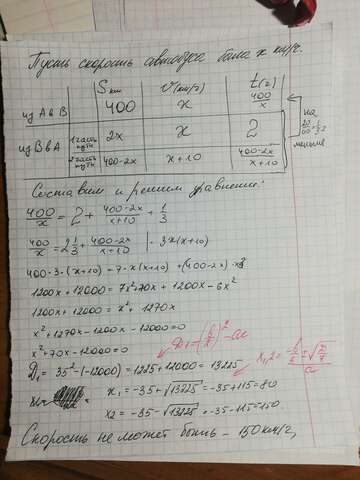 Пусть скорость автобуса была x км/ч.
S км V(км/ч) t(г)
из A в B 400 x 400/x
на 20/60 = 1/3 г меньше
из B в A 1 часть пути 2x x 2
2 часть пути 400-2x x+10 400-2x/x+10
Составим и решим уравнение:
400/x = 2 + 400-2x/x+10 + 1/3
400/x = 2 1/3 + 400-2x/x+10 | · 3x(x+10)
400·3·(x+10) = 7·x(x+10) + (400-2x)·x3
1200x + 12000 = 7x²+70x + 1200x - 6x²
1200x + 12000 = x² + 1270x
x² + 1270x - 1200x - 12000 = 0
x² + 70x - 12000 = 0
D₁ = (b/2)² - ac
D₁ = 35² - (-12000) = 1225 + 12000 = 13225
x₁,₂ = -b/2 ± √D/4 / a
x₁ = -35 + √13225 = -35 + 115 = 80
x₂ = -35 - √13225 = -35 - 115 = -150.
Скорость не может быть - 150 км/г,